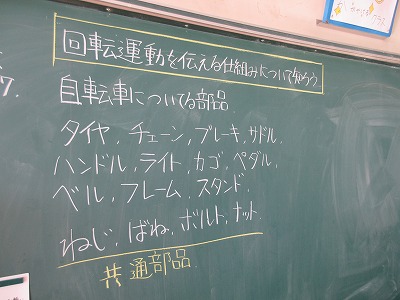 回転運動を伝える仕組みについて知ろう
自転車についてる部品
タイヤ, チェーン, ブレーキ, サドル,
ハンドル, ライト, カゴ, ペダル,
ベル, フレーム, スタンド,
ねじ, ばね, ボルト, ナット,
共通部品
7.